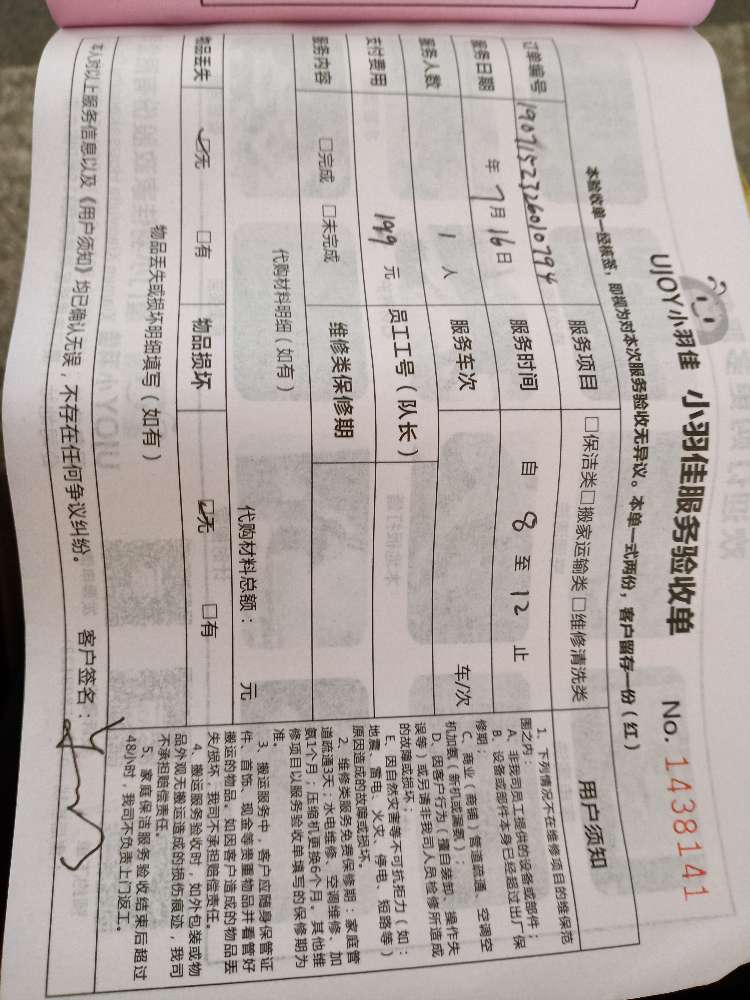 UJOY小羽佳 小羽佳服务验收单 No. 1438141
本验收单一经核签，即视为对本次服务验收无异议。本单一式两份，客户留存一份（红）
订单编号 1907152326010794 服务项目 □保洁类□搬家运输类□维修清洗类
服务日期 年7月16日 服务时间 自 8 至 12 止
服务人数 1 人 服务车次 车/次
支付费用 199 元 员工工号（队长）
服务内容 □完成 □未完成 维修类保修期
代购材料明细（如有）
代购材料总额： 元
物品丢失 ☑无 □有 物品损坏 ☑无 □有
物品丢失或损坏明细填写（如有）
本人对以上服务信息以及《用户须知》均已确认无误，不存在任何争议纠纷。 客户签名：
用户须知
1、下列情况不在维修项目的维保范
围之内：
A、非我司员工提供的设备或部件；
B、设备或部件本身已经超过出厂保
修期；
C、商业（商铺）管道疏通、空调空
机加氨（新机或漏氨）；
D、因客户行为（擅自装卸、操作失
误等）或另请非我司人员检修所造成
的故障或损坏；
E、因自然灾害等不可抗拒力（如：
地震、雷电、火灾、停电、短路等）
原因造成的故障或损坏。
2、维修类服务免费保修期：家庭管
道疏通3天；水电维修、空调维修、加
氨1个月；压缩机更换6个月。其他维
修项目以服务验收单填写的保修期为
准。
3、搬运服务中，客户应随身保管证
件、首饰、现金等贵重物品并看管好
搬运的物品。如因客户造成的物品丢
失/损坏，我司不承担赔偿责任。
4、搬运服务验收时，如外包装或物
品外观无搬运造成的损伤痕迹，我司
不承担赔偿责任。
5、家庭保洁服务验收结束后超过
48小时，我司不负责上门返工。